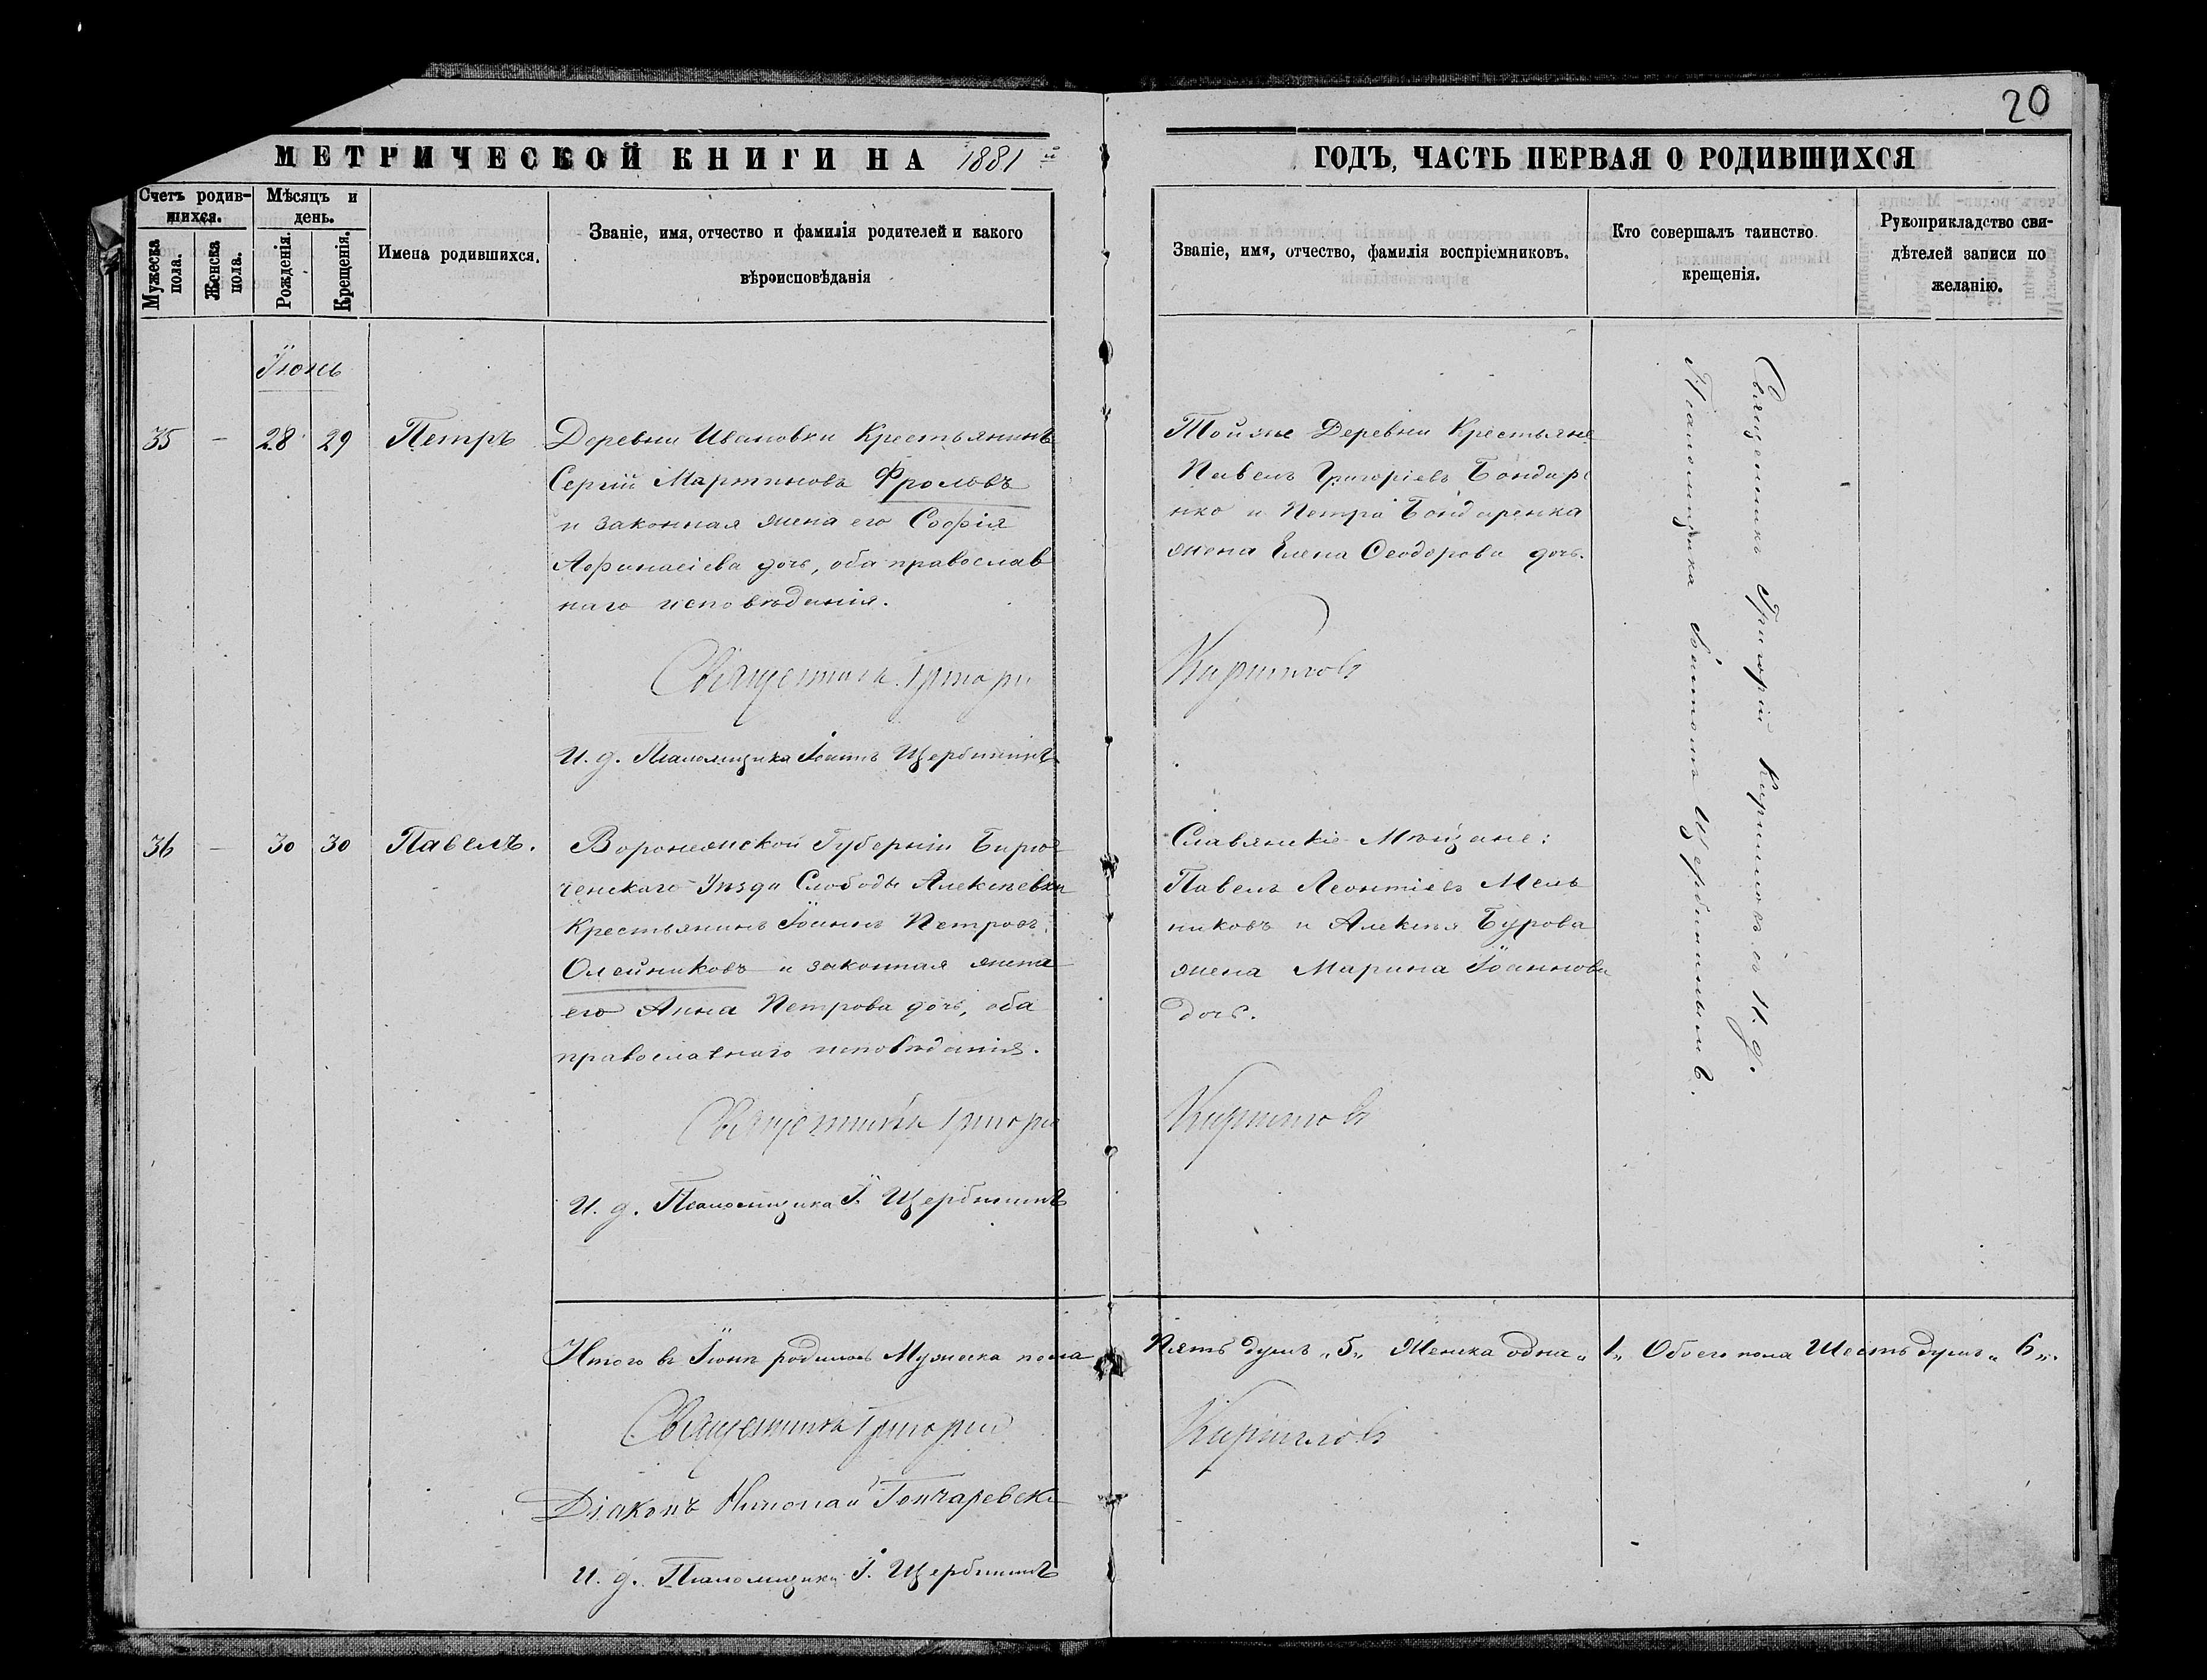 20
МЕТРИЧЕСКОЙ КНИГИ НА 1881й
ГОДЪ, ЧАСТЬ ПЕРВАЯ О РОДИВШИХСЯ
Счетъ родив-
шихся.
Мѣсяцъ и
день.
Мужеска
пола.
Женска
пола.
Рожденія.
Крещенія.
Имена родившихся.
Званіе, имя, отчество и фамилія родителей и какого
вѣроисповѣданія
Званіе, имя, отчество, фамилія воспріемниковъ.
Кто совершалъ таинство
крещенія.
Рукоприкладство сви-
дѣтелей записи по
желанію.
Іюнь
35 - 28 29 Петръ
Деревни Ивановки Крестьянинъ
Сергій Мартиновъ Фроловъ
и законная жена его Софія
Афанасіева дочь, оба православ
наго исповѣданія.
Священникъ Григорій
И. д. Псаломщика Іоаннъ Щербининъ
Тойже Деревни Крестьяне
Павелъ Григоріевъ Бондаре
нко и Петра Бондаренка
жена Елена Ѳеодорова дочь.
Кирилловъ
Священникъ Григорій Кирилловъ съ И. д.
Псаломщика Іоанномъ Щербининымъ.
36 - 30 30 Павелъ.
Воронежской Губерніи Бирю
ченскаго Уѣзда Слободы Алексѣевки
Крестьянинъ Іоаннъ Петровъ
Олейниковъ и законная жена
его Анна Петрова дочь, оба
православнаго исповѣданія.
Священникъ Григорій
И. д. Псаломщика І. Щербининъ
Славянскіе Мѣщане:
Павелъ Леонтіевъ Мель
никовъ и Алексѣя Бурова
жена Марина Іоаннова
дочь.
Кирилловъ
Итого въ Іюнѣ родилось Мужеска пола
Пять душъ „5„ Женска одна „1„ Обоего пола Шесть душъ „6„.
Священникъ Григорій
Кирилловъ
Діаконъ Николай Гончаревскі
И. д. Псаломщика І. Щербининъ